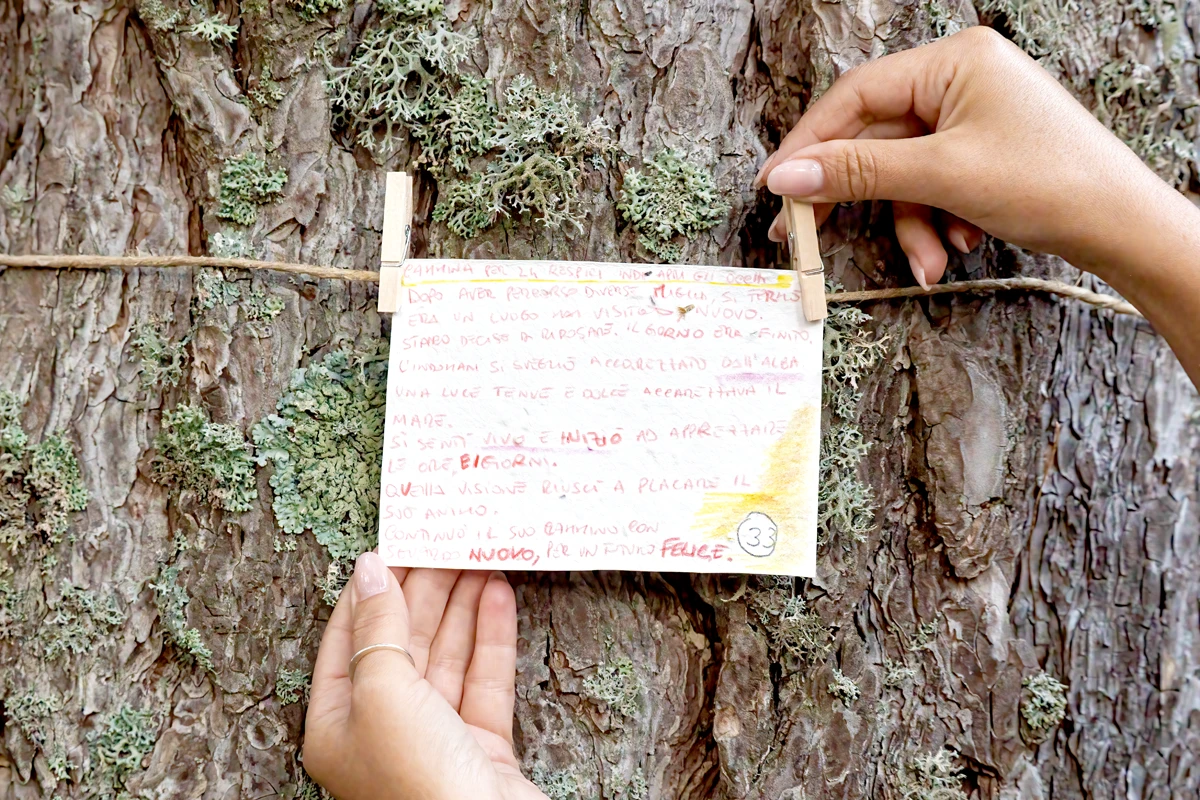 CAMMINA PER 24 RESPIRI APRI GLI OCCHI
DOPO AVER PERCORSO DIVERSE MIGLIA, SI TERMÒ
ERA UN LUOGO MAI VISITATO NUOVO.
DECISE DI RIPOSARE. IL GIORNO ERA FINITO.
L'INDOMANI SI SVEGLIÒ ACCAREZZATO DALL'ALBA
UNA LUCE TENUE E DOLCE ACCAREZZAVA IL
MARE.
SI SENTÌ VIVO E INIZIÒ AD APPREZZARE
LE ORE, E I GIORNI.
QUELLA VISIONE RIUSCÌ A PLACARE IL
SUO ANIMO.
CONTINUÒ IL SUO CAMMINO, CON
NUOVO, PER UN FUTURO FELICE.
33